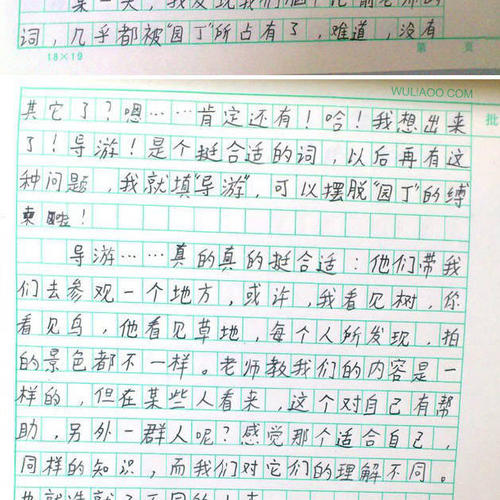 某一天，我发现我们
词，几乎都被“园丁”所占有了，难道，没有
18×19 第 页
WULIAOO.COM
批
其它了？嗯……肯定还有！哈！我想出来
了！导游！是个挺合适的词，以后再有这
种问题，我就填“导游”，可以摆脱“园丁”的缚
束啦！
导游……真的真的挺合适：他们带我
们去参观一个地方，或许，我看见树，你
看见鸟，他看见草地，每个人所发现，拍
的景色都不一样。老师教我们的内容是一
样的，但在某些人看来，这个对自己有帮
助，另外一群人呢？感觉那个适合自己，
同样的知识，而我们对它们的理解不同。